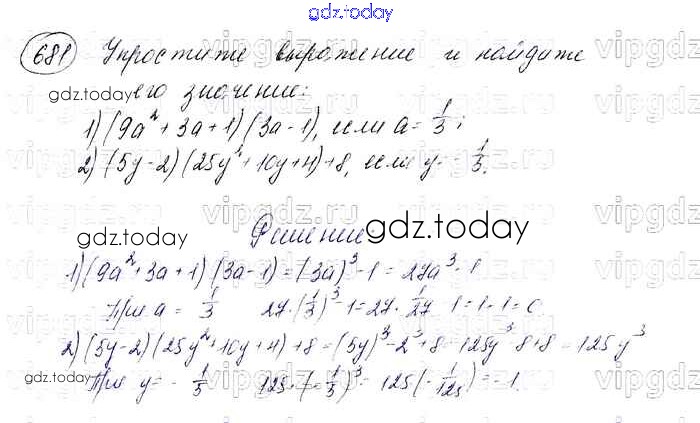 gdz.today
681 Упростите выражение и найдите
gdz.today его значение:
1) (9a² + 3a + 1) (3a - 1), если a = 1/3;
2) (5y - 2) (25y² + 10y + 4) + 8, если y = - 1/5.
Решение
gdz.today gdz.today
1) (9a² + 3a + 1) (3a - 1) = (3a)³ - 1 = 27a³ - 1
При a = 1/3 27 · (1/3)³ - 1 = 27 · 1/27 - 1 = 1 - 1 = 0
2) (5y - 2) (25y² + 10y + 4) + 8 = (5y)³ - 2³ + 8 = 125y³ - 8 + 8 = 125y³
gdz.today При y = - 1/5 125 · (- 1/5)³ = 125 (- 1/125) = - 1
vipgdz.ru
gdz.today